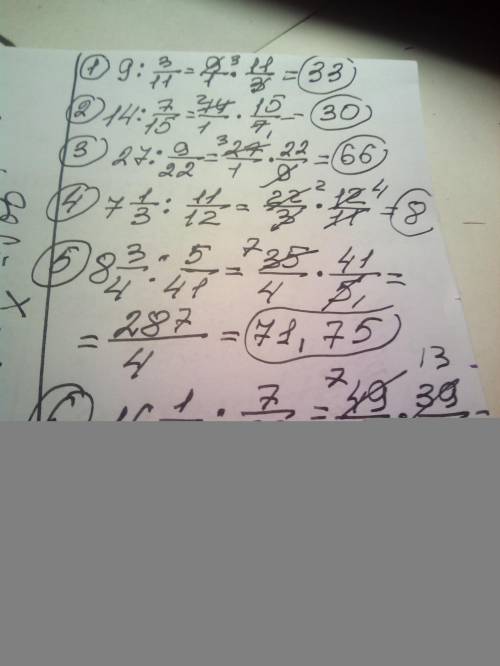 ① 9 : 3/11 = 9/1 ³ · 11/3 = 33
② 14 : 7/15 = ²14/1 · 15/7₁ = 30
③ 27 : 9/22 = ³27/1 · 22/9 = 66
④ 7 1/3 : 11/12 = 22²/3 · 12⁴/11 = 8
⑤ 8 3/4 : 5/41 = ⁷35/4 · 41/5₁ =
= 287/4 = 71,75
1 : 7 = ⁷49 · 39 13 =